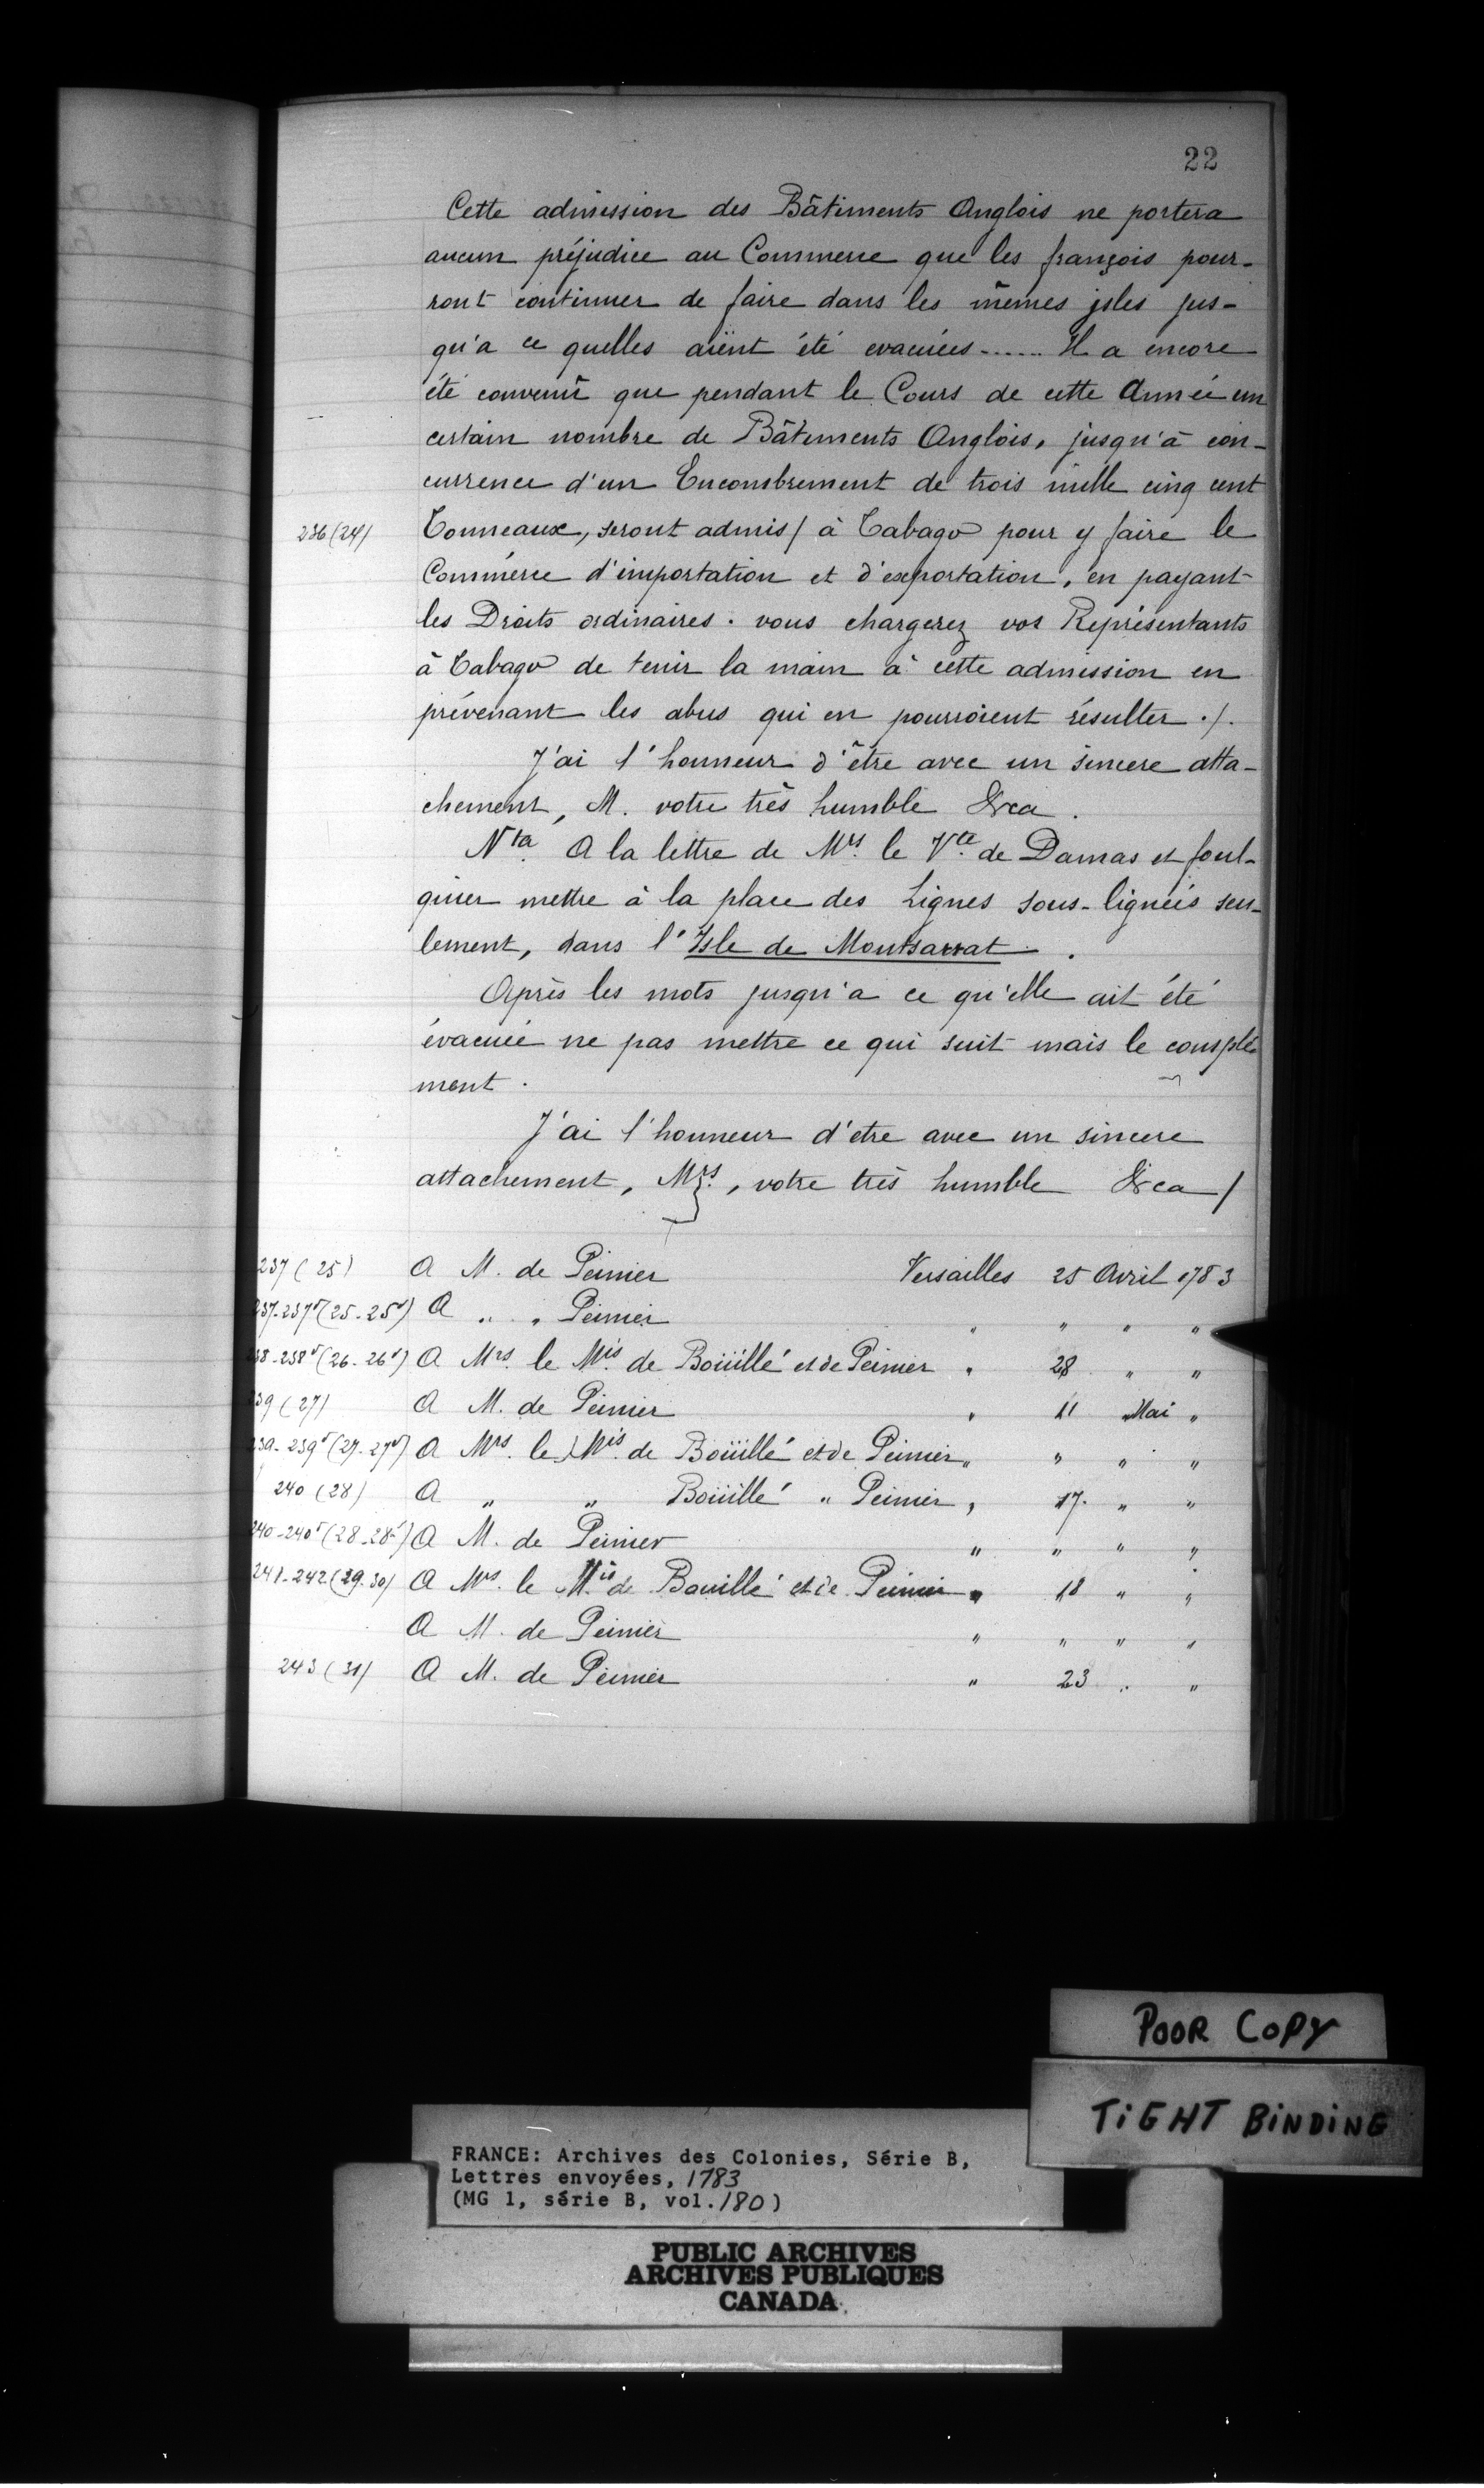 22
Cette admission des Bâtiments Anglois ne portera
aucun préjudice au Commerce que les françois pour-
ront continuer de faire dans les mêmes isles jus-
qu'a ce quelles aïent été evacuées ...... Il a encore
été convenû que pendant le Cours de cette Année un
certain nombre de Bâtiments Anglois, jusqu'à con-
currence d'un Encombrement de trois mille cinq cent
236 (24) Tonneaux, seront admis / à Tabago pour y faire le
Commerce d'importation et d'exportation, en payant
les Droits ordinaires. vous chargerez vos Représentants
à Tabago de tenir la main à cette admission en
prévenant les abus qui en pourroient résulter ./.
J'ai l'honneur d'être avec un sincere atta-
chement, M. votre très humble &ca.
Nta. A la lettre de Mrs. le Vte. de Damas et foul-
quier mettre à la place des Lignes sous-lignées seu-
lement, dans l'Isle de Montsarrat.
Après les mots jusqu'a ce qu'elle ait été
évacuée ne pas mettre ce qui suit mais le complé
ment.
J'ai l'honneur d'etre avec un sincere
attachement, Mrs., votre très humble &ca /
237 (25) A M. de Peinier Versailles 25 Avril 1783
237-237v (25-25v) A " " Peinier " " " "
238-238v (26-26v) A Mrs. le Mis. de Boüillé et de Peinier " 28 " "
239 (27) A M. de Peinier " 11 Mai "
239-239v (27-27v) A Mrs. le Mis. de Boüillé et de Peinier " " " "
240 (28) A " " Boüillé " Peinier " 17 " "
240-240v (28-28v) A M. de Peinier " " " "
241-242 (29-30) A Mrs. le Mis de Bouillé et de Peinier " 18 " "
A M. de Peinier " " " "
243 (31) A M. de Peinier " 23 " "
POOR COPY
TIGHT BINDING
FRANCE: Archives des Colonies, Série B,
Lettres envoyées, 1783
(MG 1, série B, vol. 180)
PUBLIC ARCHIVES
ARCHIVES PUBLIQUES
CANADA